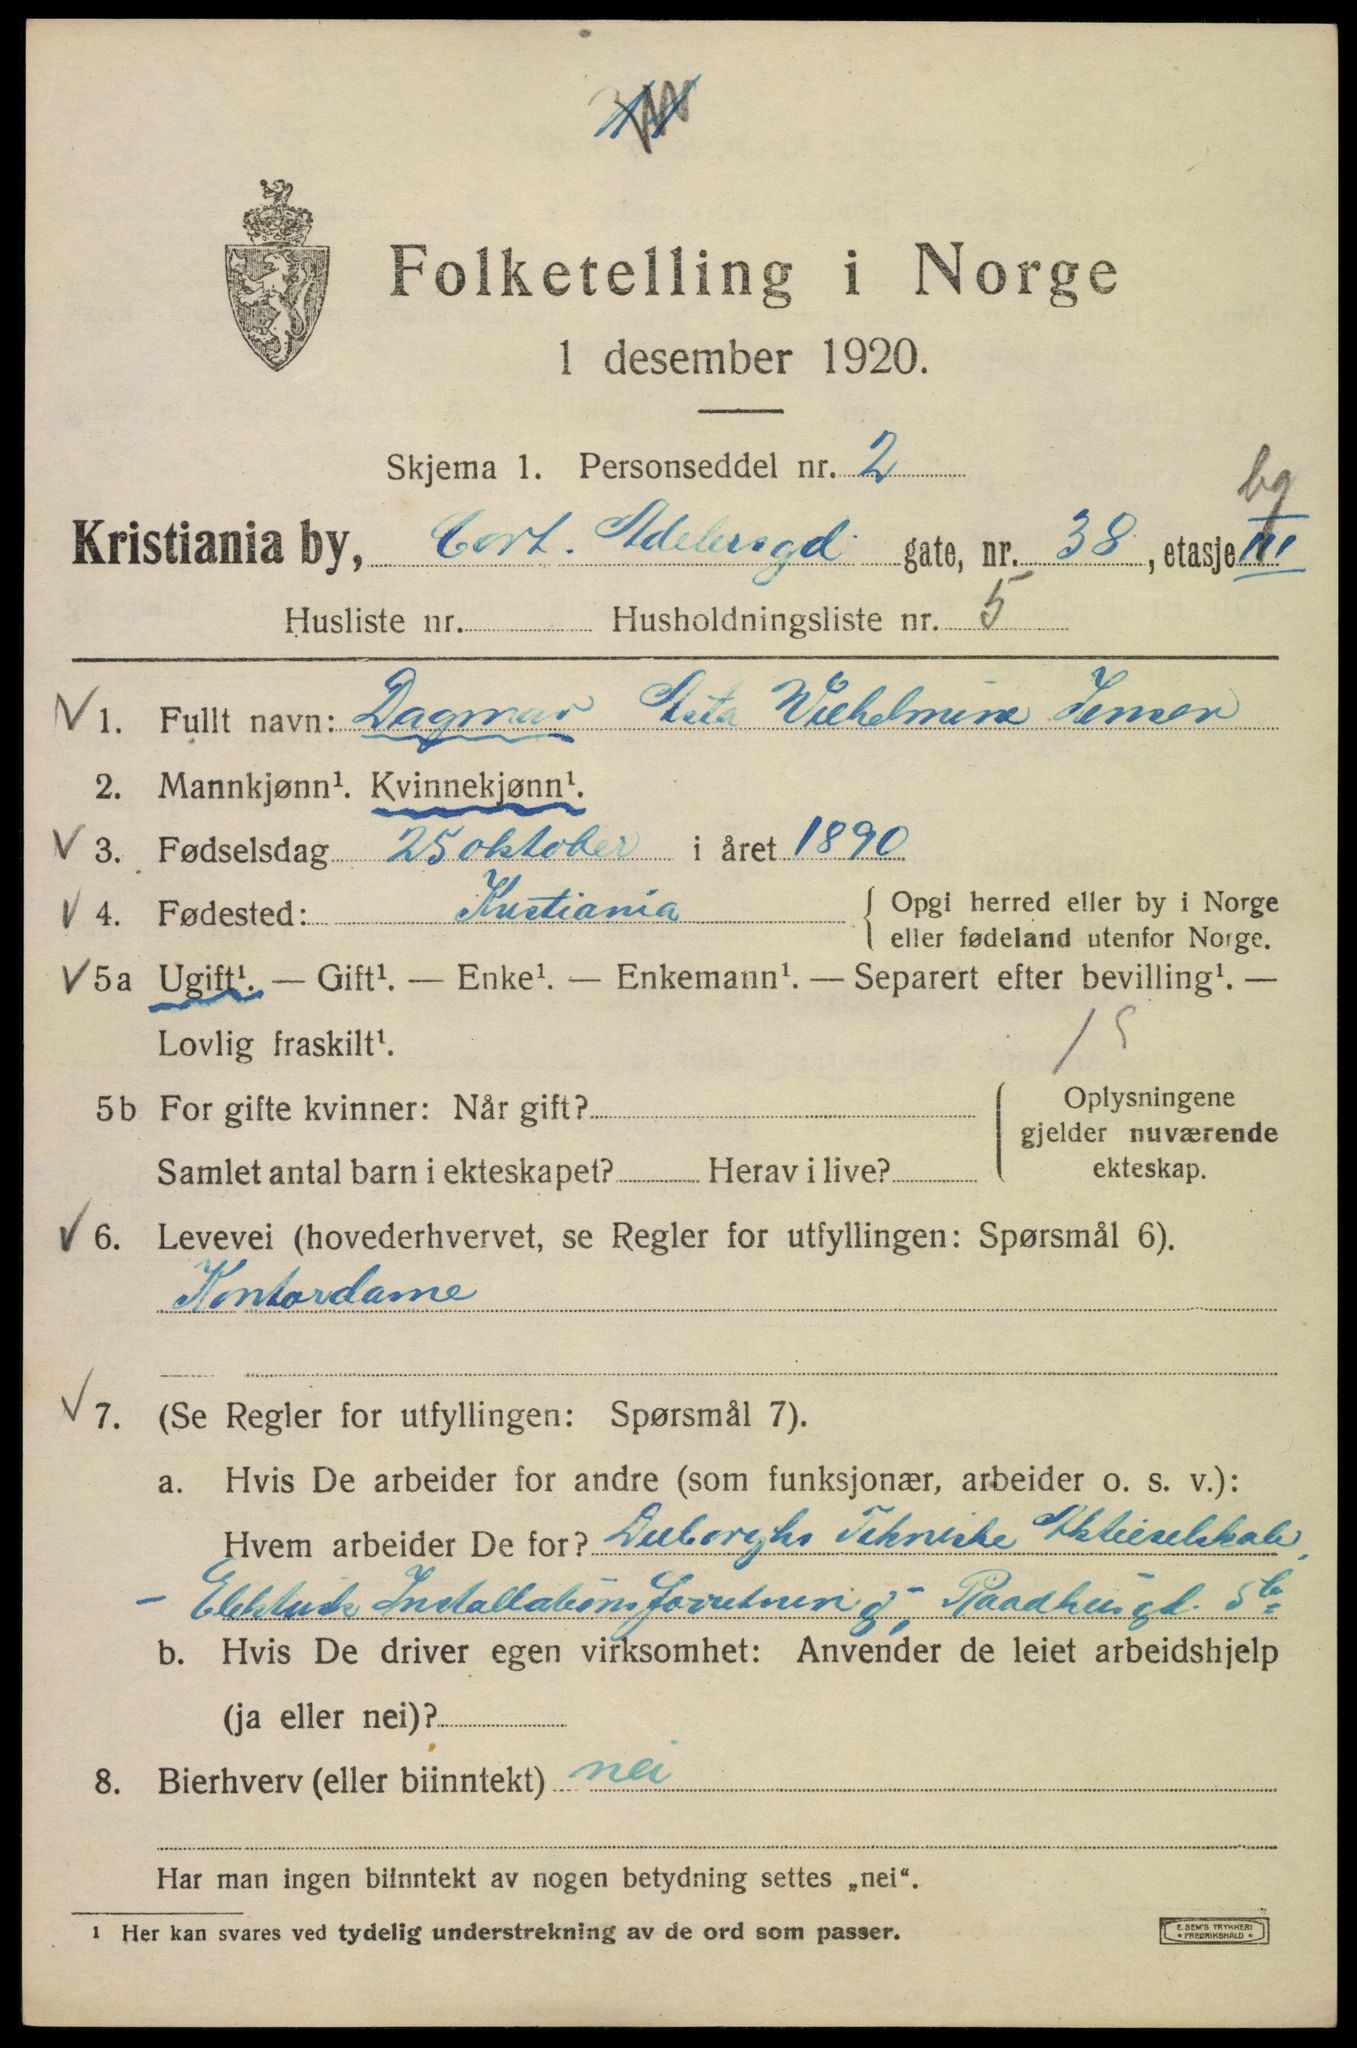 Folketelling i Norge
1 desember 1920.
Skjema 1. Personseddel nr. 2
bg
Kristiania by, Cort. Adelersgd gate, nr. 38, etasje III
Husliste nr. Husholdningsliste nr. 5
1. Fullt navn: Dagmar Asta Wilhelmine Jensen
2. Mannkjønn¹. Kvinnekjønn¹.
3. Fødselsdag 25 oktober i året 1890
4. Fødested: Kristiania { Opgi herred eller by i Norge
eller fødeland utenfor Norge.
5a Ugift¹. — Gift¹. — Enke¹. — Enkemann¹. — Separert efter bevilling¹. —
Lovlig fraskilt¹.
5b For gifte kvinner: Når gift?
Samlet antal barn i ekteskapet? Herav i live?
Oplysningene
gjelder nuværende
ekteskap.
6. Levevei (hovederhvervet, se Regler for utfyllingen: Spørsmål 6).
Kontordame
7. (Se Regler for utfyllingen: Spørsmål 7).
a. Hvis De arbeider for andre (som funksjonær, arbeider o. s. v.):
Hvem arbeider De for? Tekniske Aktieselskab,
- Elektrisk Installationsforretning, Raadhusgt. 5b
b. Hvis De driver egen virksomhet: Anvender de leiet arbeidshjelp
(ja eller nei)?
8. Bierhverv (eller biinntekt) nei
Har man ingen biinntekt av nogen betydning settes „nei“.
1 Her kan svares ved tydelig understrekning av de ord som passer.
E. SEM'S TRYKKERI
• FREDRIKSHALD •